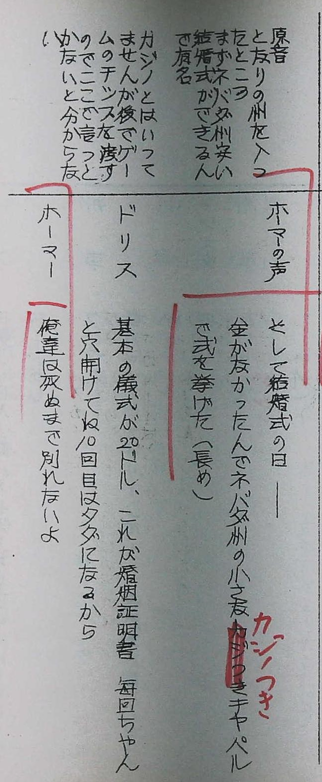 原音
となりの州を入っ
たところ
まずネバダ州安い
結婚式ができるん
で有名
カジノとはいって
ませんが後でゲー
ムのチップスを渡す
のでここで言っと
かないと分からな
い
ホーマーの声
そして結婚式の日――
金がなかったんでネバダ州の小さな カジノつき チャペル
で式を挙げた（長め）
ドリス
基本の儀式が20ドル、これが婚姻証明書 毎回ちゃん
と穴開けてね10回目はタダになるから
ホーマー
俺達は死ぬまで別れないよ